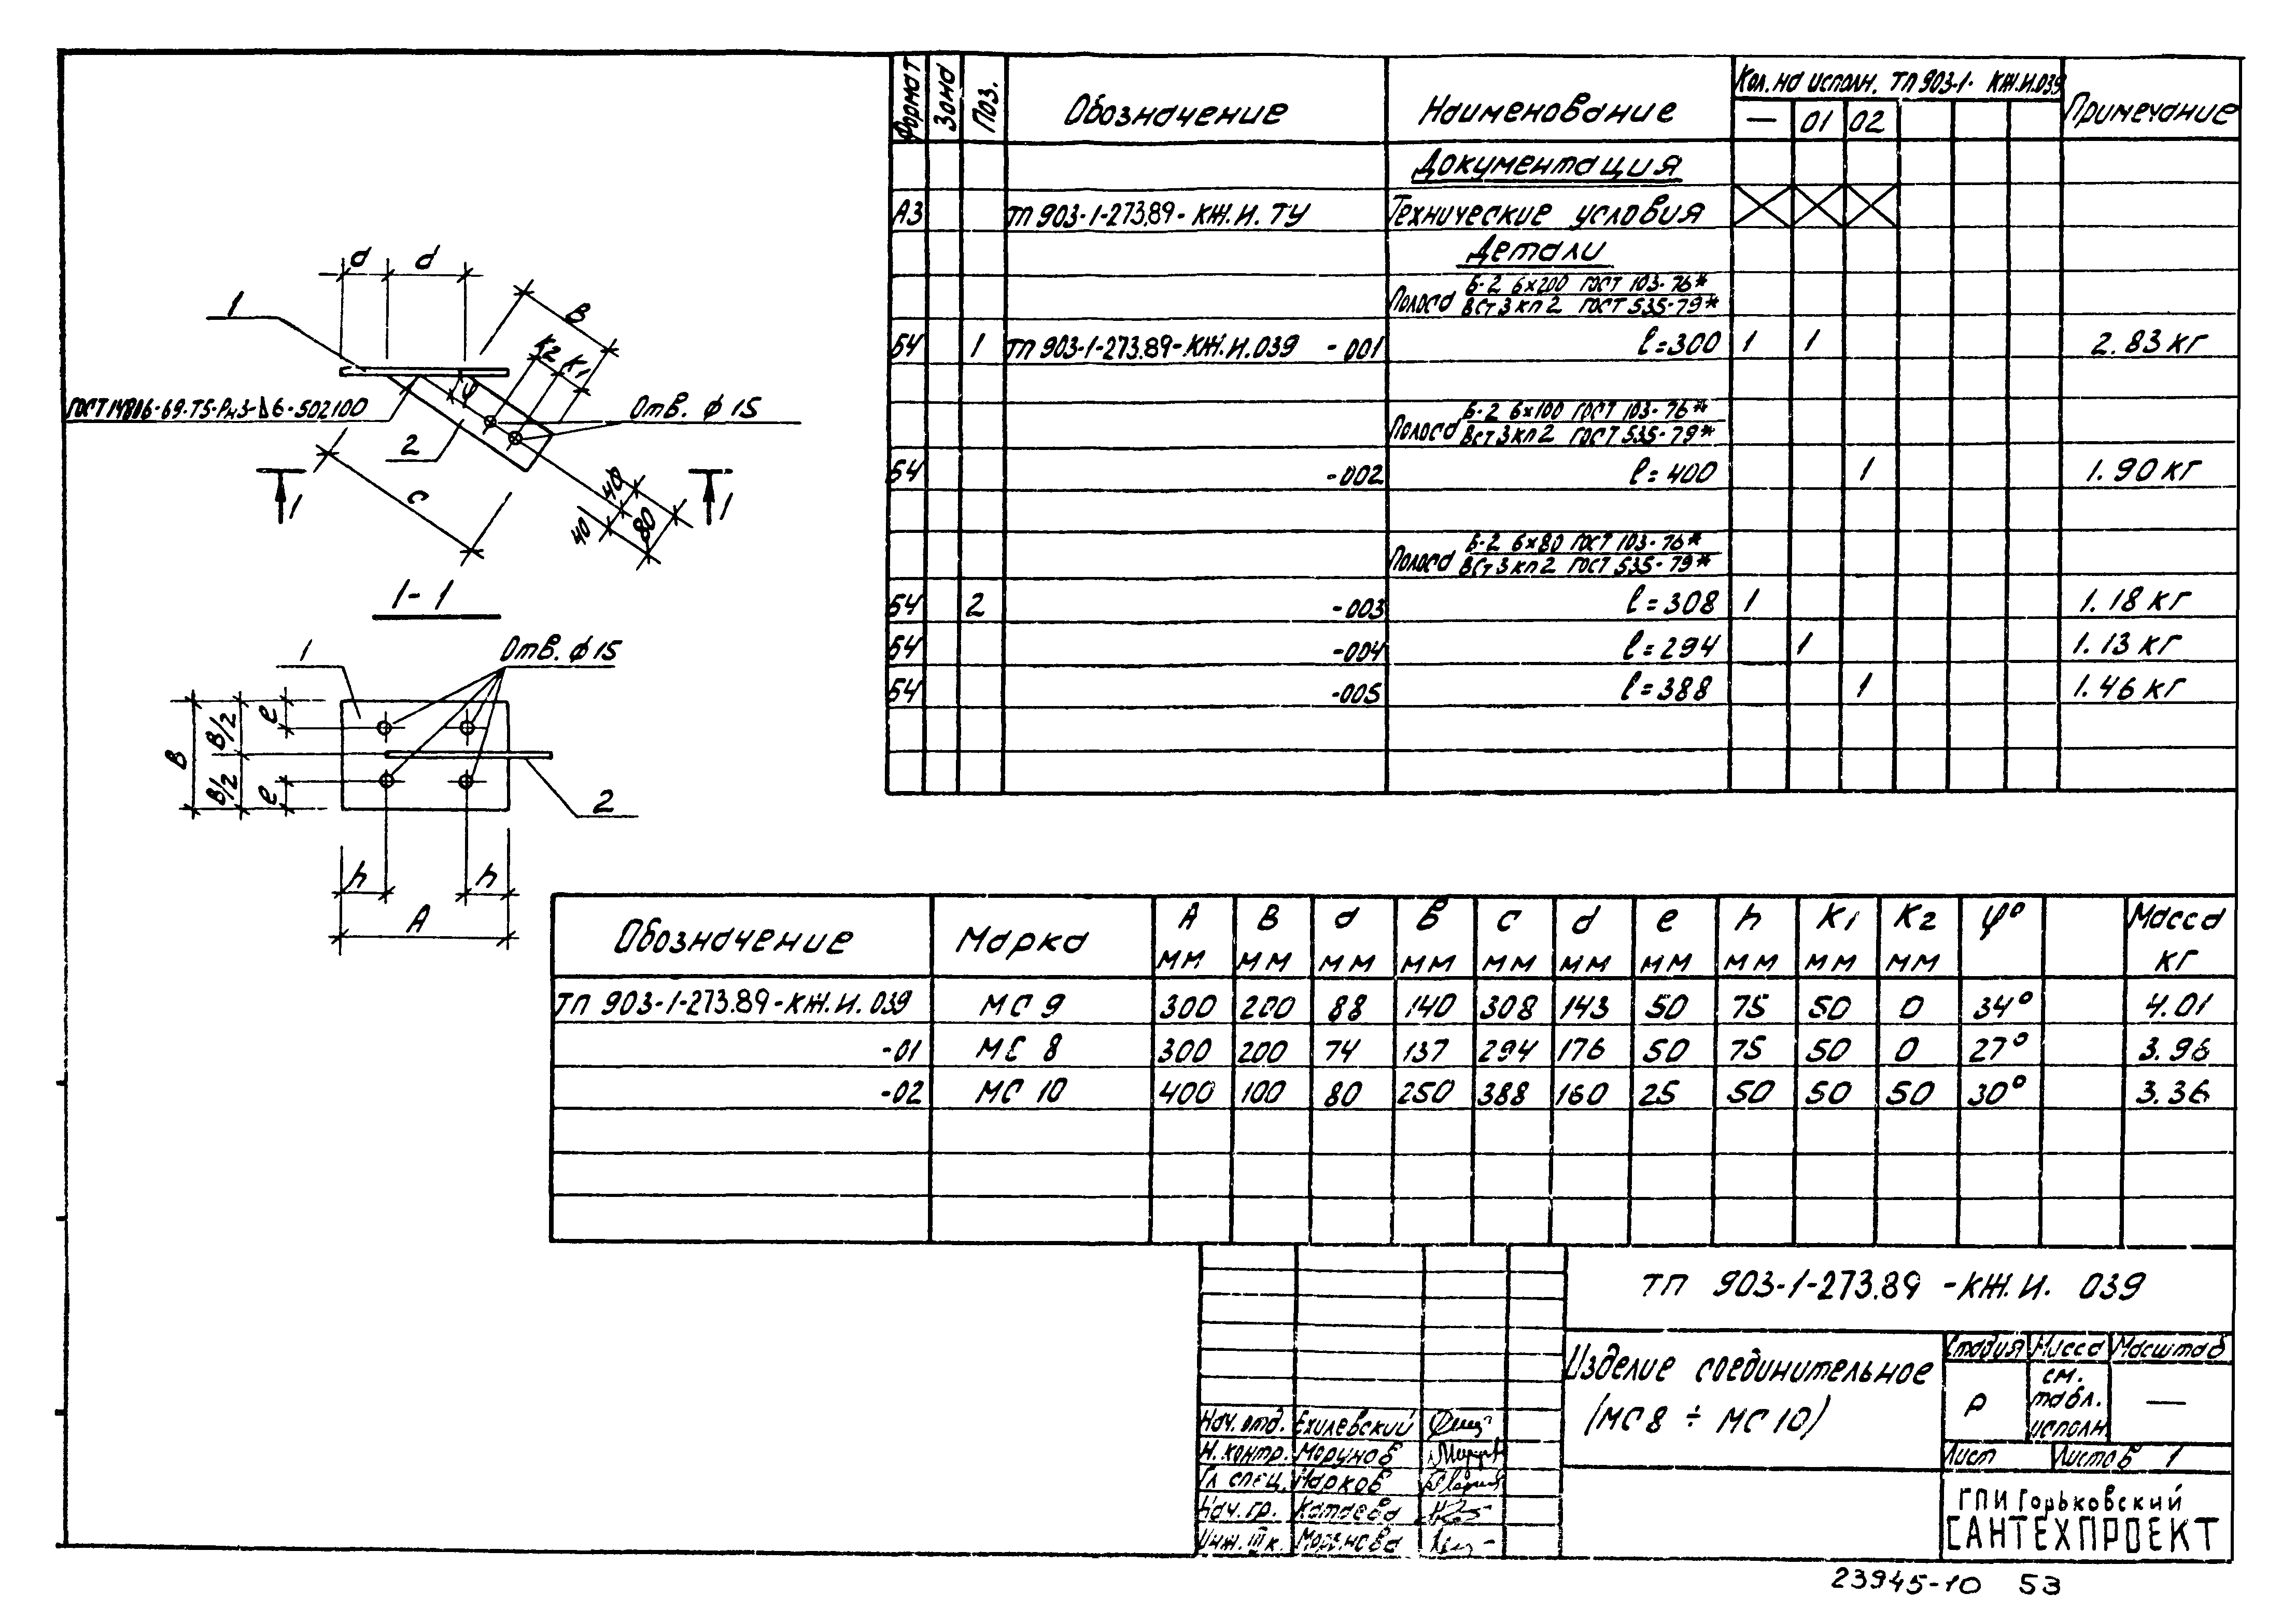 Формат Зона Поз. Обозначение Наименование Кол. на исполн. ТП 903-1- КЖ.И.039 Примечание
— 01 02
Документация
А3 ТП 903-1-273.89-КЖ.И.ТУ Технические условия
Детали
Полоса Б-2 6×200 ГОСТ 103-76*
ВСт3кп2 ГОСТ 535-79*
БЧ 1 ТП 903-1-273.89-КЖ.И.039 -001 ℓ=300 1 1 2.83 кг
Полоса Б-2 6×100 ГОСТ 103-76*
ВСт3кп2 ГОСТ 535-79*
БЧ -002 ℓ=400 1 1.90 кг
Полоса Б-2 6×80 ГОСТ 103-76*
ВСт3кп2 ГОСТ 535-79*
БЧ 2 -003 ℓ=308 1 1.18 кг
БЧ -004 ℓ=294 1 1.13 кг
БЧ -005 ℓ=388 1 1.46 кг
d d
1
в
К2 К1
φ
ГОСТ 14806-69-Т5-Рн3-∆6-50Z100
Отв. ф 15
2
с
1 1
40 40 80
1-1
1 Отв. ф 15
В В/2 В/2 е е
2
h h
А
Обозначение Марка А мм В мм а мм в мм с мм d мм е мм h мм К1 мм К2 мм φ° Масса кг
ТП 903-1-273.89-КЖ.И.039 МС 9 300 200 88 140 308 143 50 75 50 0 34° 4.01
-01 МС 8 300 200 74 137 294 176 50 75 50 0 27° 3.96
-02 МС 10 400 100 80 250 388 160 25 50 50 50 30° 3.36
ТП 903-1-273.89 -КЖ.И. 039
Изделие соединительное
(МС 8 ÷ МС 10)
Стадия Масса Масштаб
Р см. табл. исполн. —
Лист Листов 1
Нач. отд. Ехилевский
Н. контр. Морунов
Гл. спец. Марков
Нач. гр. Катаева
Инж. III к.
ГПИ Горьковский
САНТЕХПРОЕКТ
23945-10 53